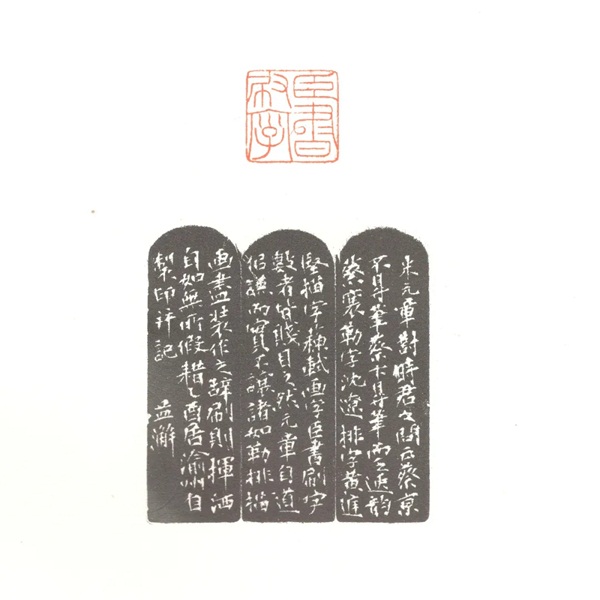 臣書
刷字
米元章對時君之問云蔡京
不得筆蔡卞得筆而乏逸韵
蔡襄勒字沈遼排字黃庭
堅描字蘇軾画字臣書刷字
數者皆賤目之然元章自道
似謙而實不謙諸如勒排描
画盡裝作之辭刷則揮洒
自如無所假耤乙酉居渝州自
製印并記